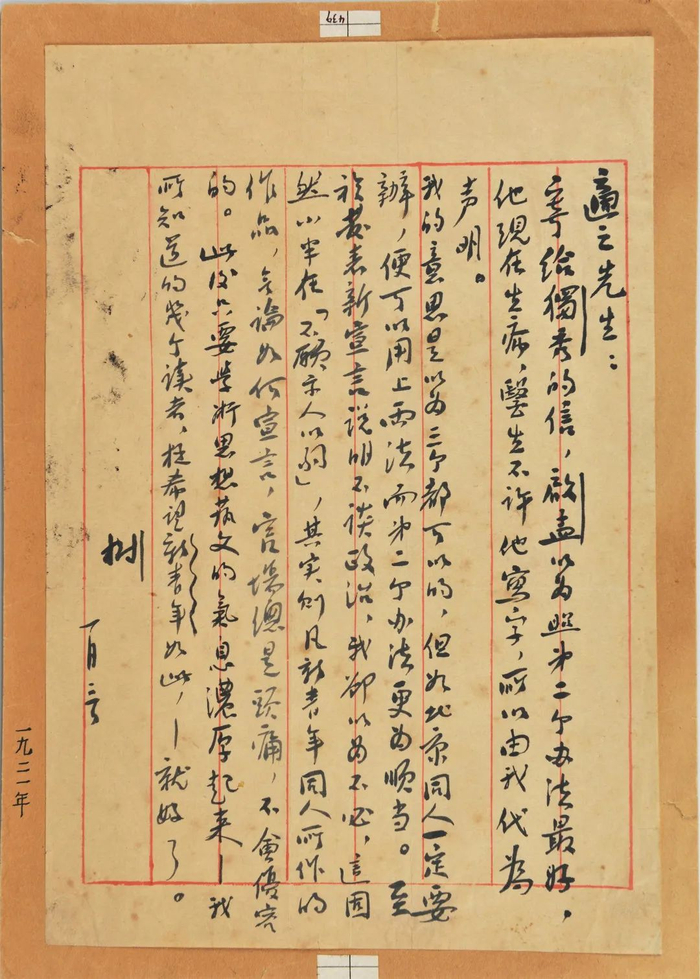 適之先生：
寄給獨秀的信，啟孟以为照第二个办法最好，
他現在生病，醫生不許他寫字，所以由我代为
声明。
我的意思是以为三个都可以的，但如北京同人一定要
辦，便可以用上两法而第二个办法更为顺当。至
於發表新宣言說明不談政治，我卻以为不必，這固
然小半在「不願示人以弱」，其实則凡新青年同人所作的
作品，無論如何宣言，官場總是頭痛，不會優容
的。此後只要學術思想藝文的氣息濃厚起来——我
所知道的幾个读者，極希望新青年如此，——就好了。
樹
一月三日
一九二一年
439